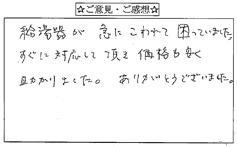 ☆ご意見・ご感想☆
給湯器が 急に こわれて 困っていました。
すぐに 対応して 頂き 価格も安く
助かりました。 ありがとうございました。